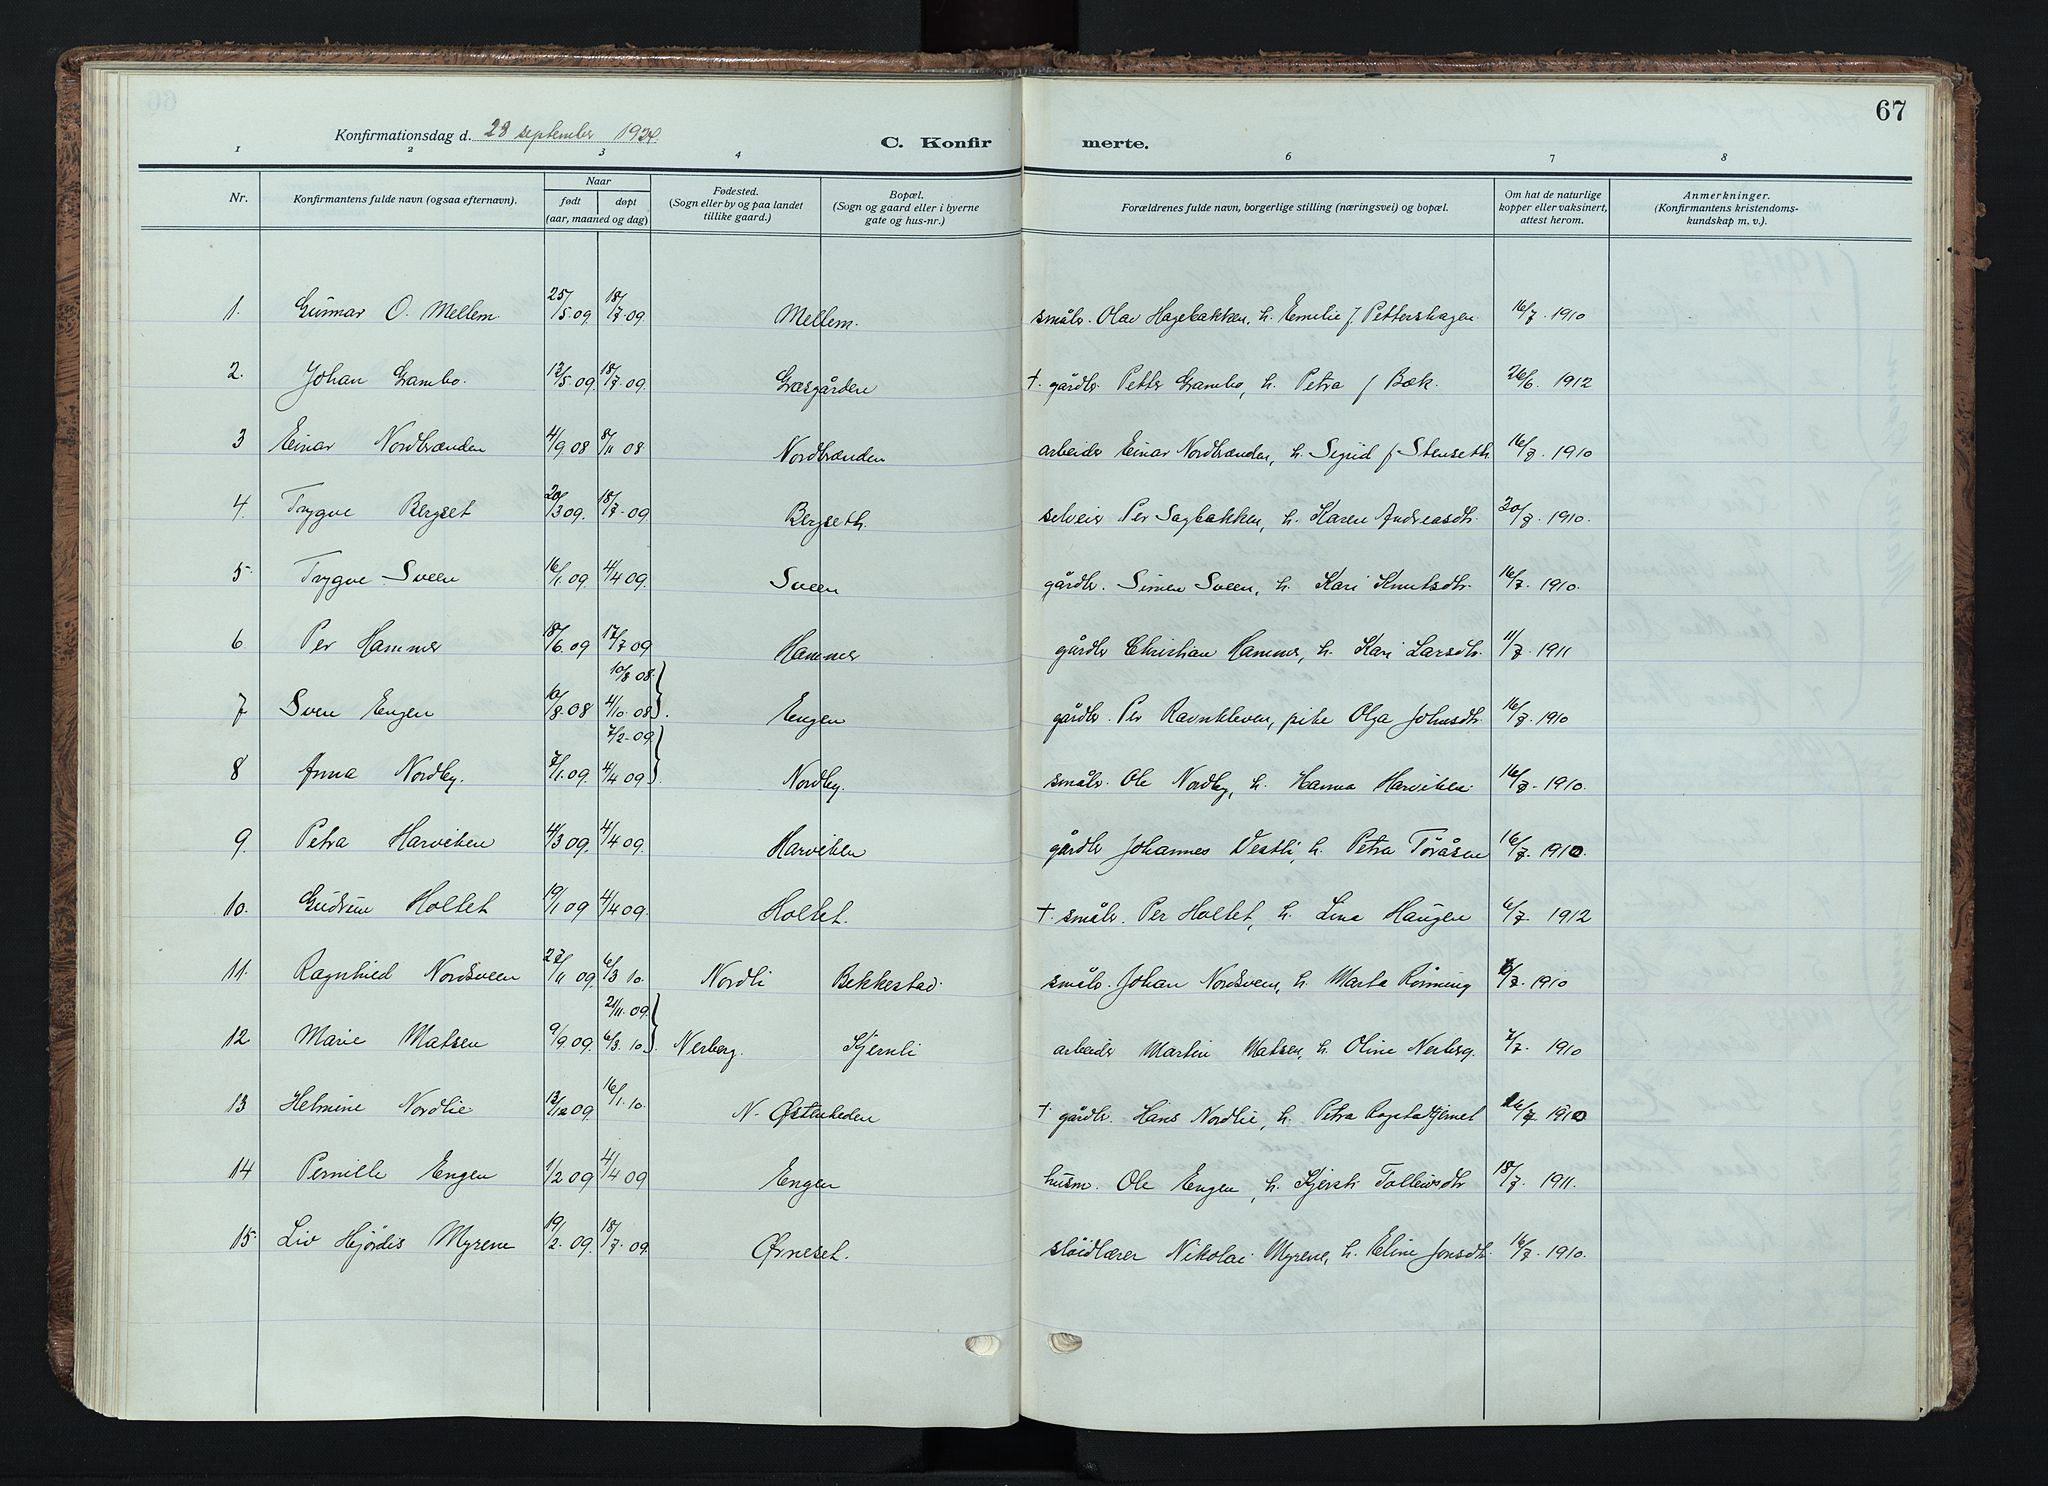 67
Konfirmationsdag d. 28 september 1924
C. Konfirmerte.
1 2 3 4 6 7 8
Nr. Konfirmantens fulde navn (ogsaa efternavn). Naar født døpt (aar, maaned og dag) Fødested. (Sogn eller by og paa landet tillike gaard.) Bopæl. (Sogn og gaard eller i byerne gate og hus-nr.) Forældrenes fulde navn, borgerlige stilling (næringsvei) og bopæl. Om hat de naturlige kopper eller vaksinert, attest herom. Anmerkninger. (Konfirmantens kristendomskundskap m. v.).
1. Gunnar O. Mellem. 25/5 09. 18/7 09 Mellem. småbr. Olav Hagebakken, h. Emilie f. Pettershagen. 16/7. 1910
2. Johan Grambo. 13/5 09. 18/7 09. Græsgården †. gårdbr. Petter Grambo, h. Petra f Bæk. 26/6. 1912
3 Einar Nordbrænden 4/9 08 8/11 08 Nordbrænden arbeider Einar Nordbrænden, h. Sigrid f Stenseth 16/7. 1910
4. Trygve Bergset 20/3 09. 18/7 09 Bergseth. selveier Per Sagbakken, h. Karen Andreasdtr. 20/7. 1910.
5. Trygve Sveen 16/1 09 4/4 09. Sveen gårdbr. Simen Sveen, h. Kari Knutsdtr. 16/7. 1910.
6 Per Hammer 18/6 09 17/7 09 Hammer gårdbr Christian Hammer, h. Kari Larsdtr. 11/7. 1911
7 Sven Engen 10/8 08 10/8 08. 4/10 08. Engen gårdbr. Per Ravnkleven, pike Olga Johnsdtr. 16/7. 1910
8 Anna Nordby. 7/1 09. 7/2 09. 4/4 09. Nordby. småbr. Ole Nordby, h. Hanna Harviken. 16/7. 1910.
9. Petra Harviken 4/3 09. 4/4 09. Harviken gårdbr Johannes Vestli, h. Petra Toråsen 16/7. 1910.
10. Gudrun Holtet 19/1 09 4/4 09. Holtet. †. småbr. Per Holtet, h. Lina Haugen 6/7. 1912
11. Ragnhild Nordsveen 27/11 09. 6/3 10. Nordli Bekkestad. småbr. Johan Nordsveen, h. Marta Rønning 6/7. 1910
12 Marie Matsen 9/9 09. 21/11 09. 6/3 10. Nerberg. Kjernli arbeider Martin Matsen, h. Oline Nerberg. 7/7. 1910
13 Helmine Nordlie 13/12 09. 16/1 10. N. Østenheden † gårdbr. Hans Nordlie, h. Petra Ragstadtjernet 16/7. 1910
14 Pernille Engen 1/2 09 4/4 09 Engen husm. Ole Engen, h. Kjersti Tollevsdtr 18/7. 1911.
15. Liv Hjørdis Myrene 19/2 09. 18/7 09. Ørneset. sløidlærer Nikolai Myrene, h. Eline Jonsdtr. 16/7. 1910.